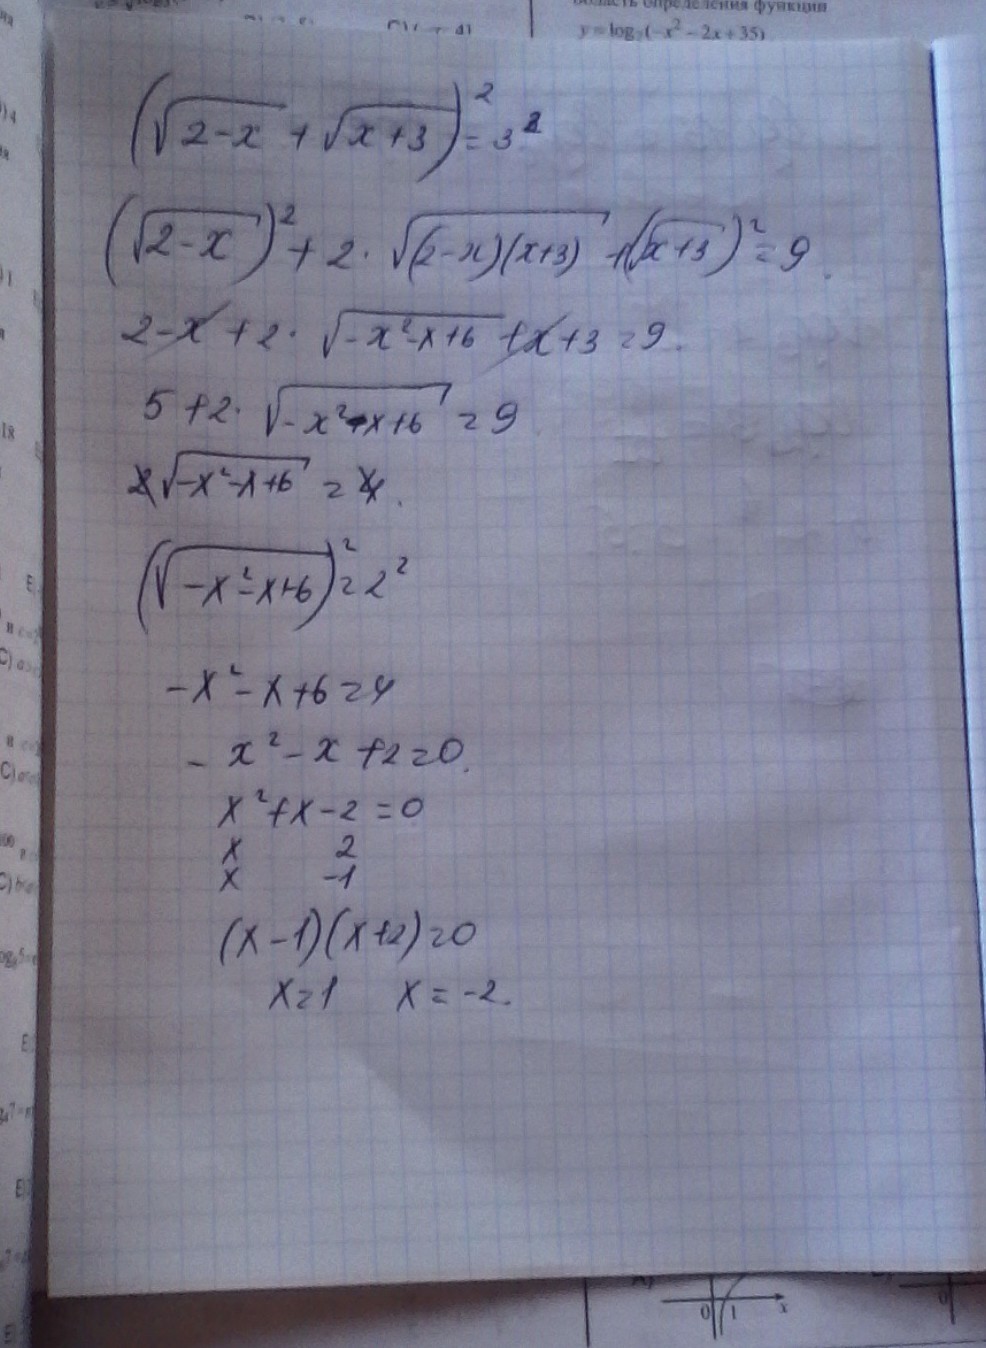 область определения функции
y = log₇(−x² − 2x + 35)
(√(2−x) + √(x+3))² = 3²
(√(2−x))² + 2 · √((2−x)(x+3)) + (√(x+3))² = 9.
2 − x + 2 · √(−x²−x+6) + x + 3 = 9.
5 + 2 · √(−x²−x+6) = 9
2√(−x²−x+6) = 4.
(√(−x²−x+6))² = 2²
−x² − x + 6 = 4
− x² − x + 2 = 0.
x² + x − 2 = 0
x 2
x −1
(x − 1)(x + 2) = 0
x = 1 x = −2.
0 1 x
0